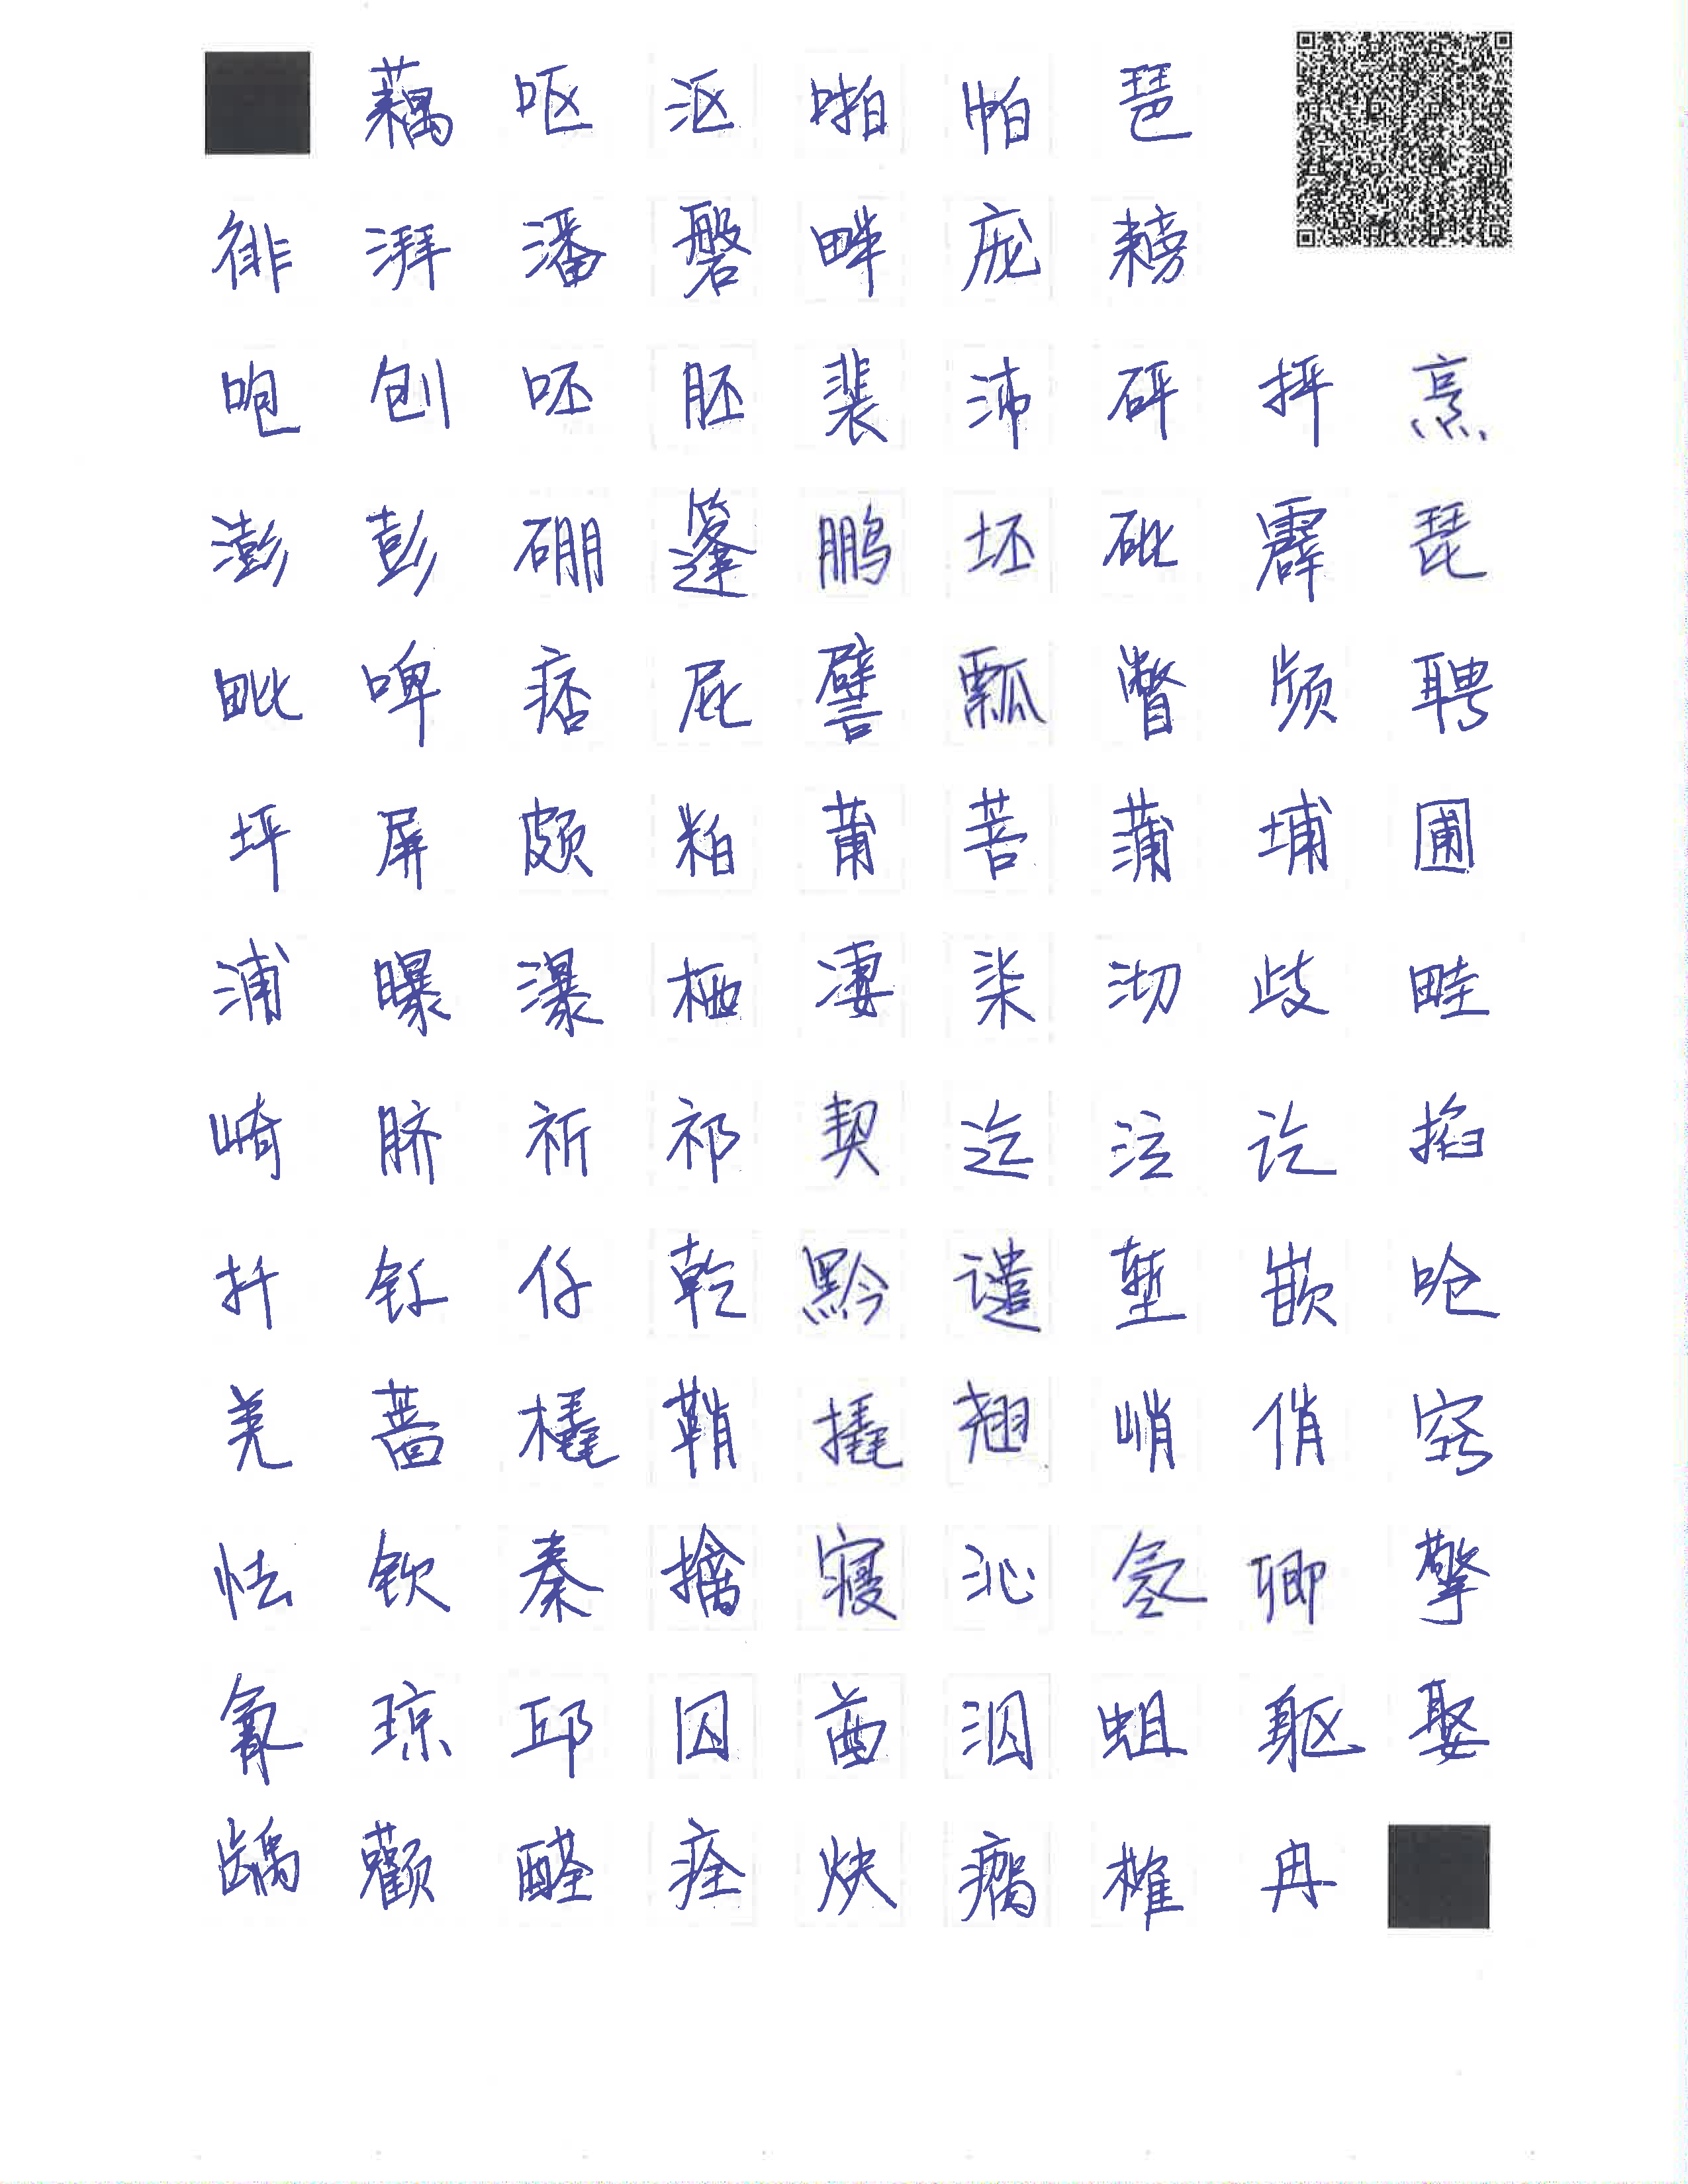 藕呕沤啪帕琶
徘湃潘磐畔庞耪
咆刨呸胚裴沛砰抨烹
澎彭硼篷鹏坯砒霹琵
毗啤痞屁譬瓢瞥频聘
坪屏颇粕莆菩蒲埔圃
浦曝瀑栖凄柒沏歧畦
崎脐祈祁契迄泣讫掐
扦钎仟乾黔谴堑嵌呛
羌蔷橇鞘撬翘峭俏窍
怯钦秦擒寝沁氢卿擎
氰琼邱囚酋泅蛆躯娶
龋颧醛痊炔瘸榷冉